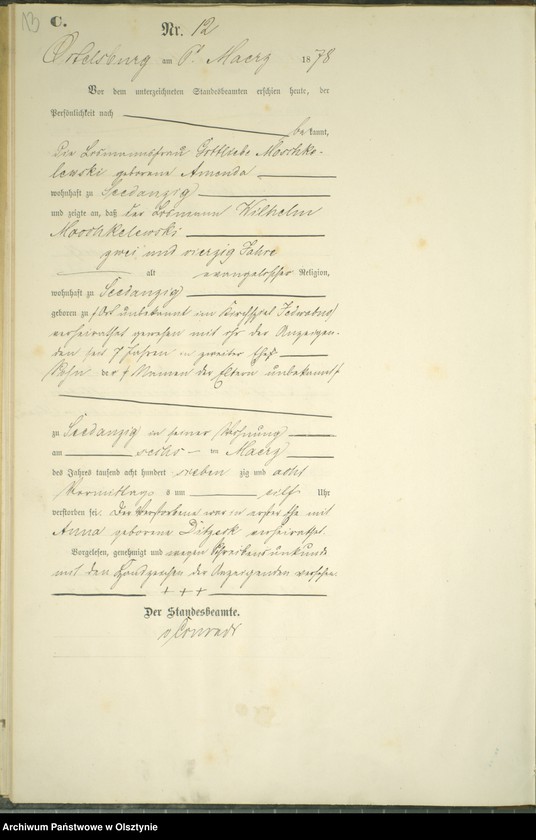 13
C.
Nr. 12
Ortelsburg am 6. Maerz 1878
Vor dem unterzeichneten Standesbeamten erschien heute, der
Persönlichkeit nach
bekannt,
die Losmannsfrau Gottliebe Moschke-
lewski geborene Amenda
wohnhaft zu Seedanzig
und zeigte an, daß der Losmann Wilhelm
Moschkelewski
zwei und vierzig Jahre
alt evangelischer Religion,
wohnhaft zu Seedanzig
geboren zu (Ort unbekannt im Kirchspiel Jedwabno)
verheirathet gewesen mit ihr der Anzeigen-
den seit 7 Jahren in zweiter Ehe
Sohn der (Namen der Eltern unbekannt)
zu Seedanzig in seiner Wohnung
am sechs- ten Maerz
des Jahres tausend acht hundert sieben zig und acht
Vormittags um eilf Uhr
verstorben sei. Der Verstorbene war in erster Ehe mit
Anna geborene verheirathet.
Vorgelesen, genehmigt und wegen Schreibensunkunde
mit den Handzeichen der Anzeigenden versehen.
+ + +
Der Standesbeamte.
v. Conradi
Archiwum Państwowe w Olsztynie